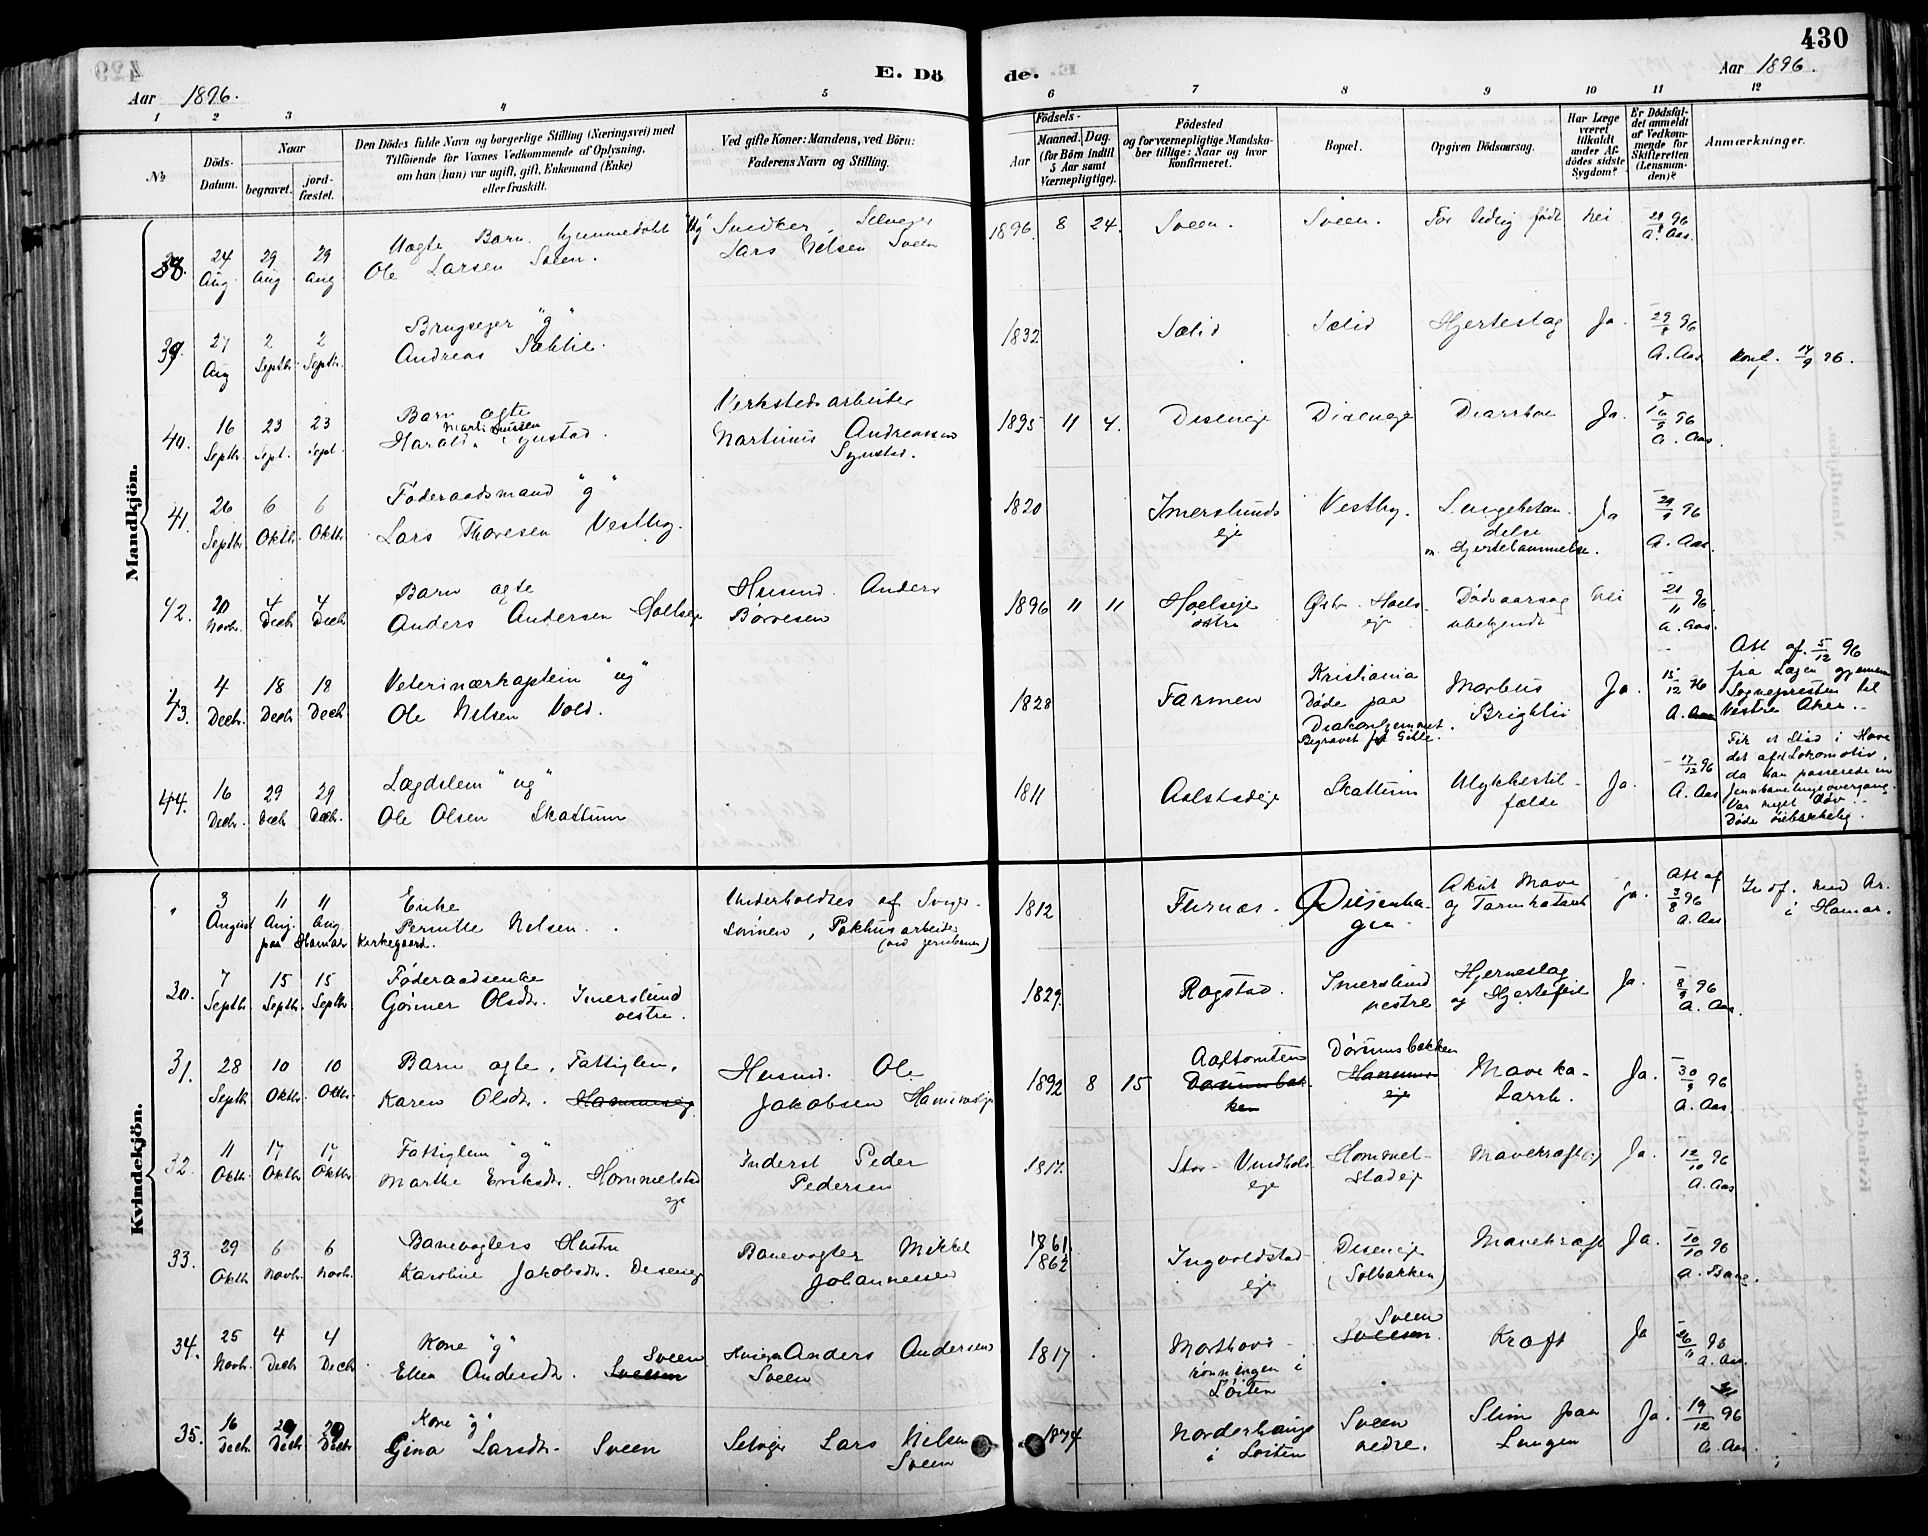 430
E. Dö de.
Aar 1896.
Aar 1896.
1 2 3 4 5 6 7 8 9 10 11 12
№
Döds-Datum.
Naar
begravet.
jord-fæstet.
Den Dödes fulde Navn og borgerlige Stilling (Næringsvei) med
Tilföiende for Voxnes Vedkommende af Oplysning,
om han (hun) var ugift, gift, Enkemand (Enke)
eller fraskilt.
Ved gifte Koner: Mandens, ved Börn:
Faderens Navn og Stilling.
Födsels-
Aar
Maaned. Dag.
(for Börn indtil
5 Aar samt
Værnepligtige).
Födested
og for værnepligtige Mandska-
ber tillige: Naar og hvor
konfirmeret.
Bopæl.
Opgiven Dödsaarsag.
Har Læge
været
tilkaldt
under Af-
dödes sidste
Sygdom?
Er Dödsfal-
det anmeldt
af Vedkom-
mende for
Skifteretten
(Lensman-
den)?
Anmærkninger.
Mandkjön.
38. 24 Aug. 29 Aug 29 Aug
Uægte Barn hjemmedöbt
Ole Larsen Sveen.
Snedker, Selveger
Lars Nelsen Sveen
1896. 8 24. Sveen. Sveen. For tidlig födt Nei 28/8 96
A. Aas.
39. 27 Aug 2 Septbr. 2 Septbr.
Brugseier "g"
Andreas Sæhlie.
1832 Sælid Sælid Hjerteslag Ja. 29/8 96
A. Aas
Konf. 14/9 96.
40. 16 Septbr. 23 Sept. 23 Sept.
Barn ægte
Martinussen
Harald Synstad.
Verkstedsarbeider
Martinus Andreassen
Synstad.
1895 11 4. Diseneje Diseneje Diarrhoe Ja. 16/9 96
A. Aas.
41. 26 Septbr. 6 Oktbr. 6 Oktbr
Föderaadsmand "g"
Lars Thoresen Vestby.
1820 Imerslunds
eje
Vestby. Lungebetæn-
delse
og Hjertelammelse.
Ja 29/9 96
A. Aas.
42. 20 Novbr. 4 Decbr 4 Decbr
Barn ægte
Anders Andersen Hoelseje
Husmd. Anders
Börresen
1896 11 11 Hoelseje
östre
Östr. Hoels-
eje
Dödsaarsag
ubekjendt
Nei 21/11 96.
A. Aas.
43. 4 Decbr. 18 Decbr. 18 Decbr
Veterinærkaptein "ug"
Ole Nelsen Vold.
1828 Farmen Kristiania
Döde paa
Diakonhjemmet.
Begravet fra Gille.
Morbus
Brightii
Ja. 15/12 96
A. Aas
Att af. 5/12 96
fra Lægen gjennem
Sognepresten til
Vestre Aker.
44. 16 Decbr. 29 Decbr 29 Decbr.
Lægdslem "ug"
Ole Olsen Skattum
1811 Aalstadeje Skattum Ulykkestil-
fælde
Ja. 17/12 96
A. Aas
Fik et Stöd i Hove
det af et Lokomotiv,
da han passerede en
Jernbanelinjeovergang.
Var meget döv.
Döde öieblikkelig.
Kvindekjön.
" 3 August 11 Aug. 11 Aug
paa Hamar Kirkegaard.
Enke
Pernille Nelsen.
Underholdtes af Sviger-
sönnen, Pakhusarbeider
(ved Jernbanen)
1812 Furnæs. Disenha-
gen
Akut Mave
og Tarmkatarrh
Ja. Att af
3/8 96
A. Aas
Indf. med Nr.
i Hamar.
30. 7 Septbr 15 Septbr. 15 Septbr
Föderaadsenke
Görner Olsdtr. Imerslund
vestre.
1829. Rogstad. Imerslund
vestre
Hjerneslag
og Hjertefeil
Ja. 8/9 96
A. Aas.
31. 28 Septbr 10 Oktbr. 10 Oktbr.
Barn ægte, Fattiglem,
Karen Olsdtr. Hammerseje
Husmd. Ole
Jakobsen Hammerseje
1892 8 15 Aaltomten
Dörumsbak-
ken
Dörumsbakken
Hammers-
eje
Maveka-
tarrh.
Ja. 30/9 96
A. Aas.
32. 11 Oktbr. 17 Oktbr. 17 Oktbr
Fattiglem "g"
Marthe Eriksdtr. Hommelstad
eje
Inderst Peder
Pedersen
1817. Stor-Vindhols
eje
Hommel-
stadeje
Mavekræft Ja. 12/10 96
A. Aas
33. 29 Oktbr 6 Novbr. 6 Novbr.
Banevogters Hustru
Karoline Jakobsdtr. Diseneje
Banevogter Mikkel
Johannessen
1861.
1862
Ingvoldstad
eje
Diseneje
(Solbakken)
Mavekræft Ja. 10/10 96
A. Bang.
34. 25 Novbr. 4 Decbr 4 Decbr
Kone "g"
Ellen Andersdtr. Sveen
Anders Andersen
Sveen
1817 Morthovs-
rönningen i
Löiten
Sveen
Kræft Ja 26/11 96
A. Aas.
35. 16 Decbr. 29 Decbr 29 Decbr
Kone "g"
Gina Larsdtr. Sveen
Selveger Lars Nelsen
Sveen
1874 Norderhaug
i Löiten
Sveen
nedre.
Slim paa
Lungen
Ja. 19/12 96
A. Aas.